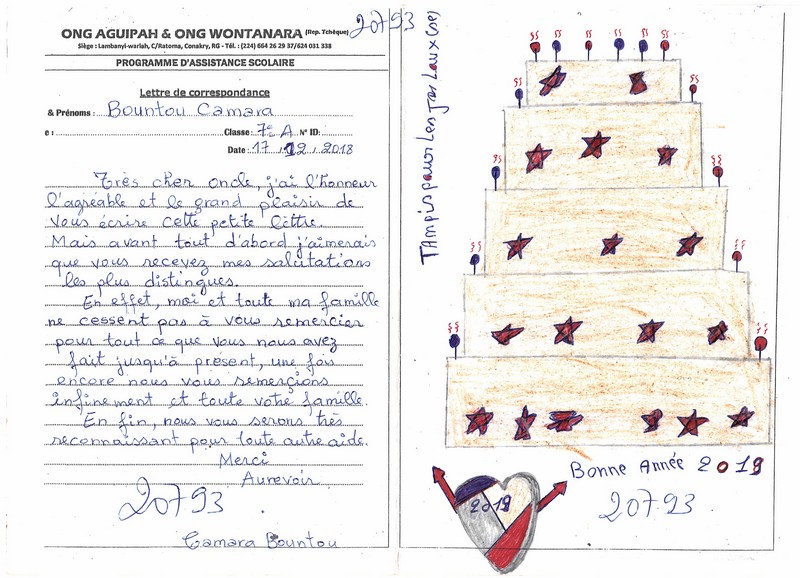 ONG AGUIPAH & ONG WONTANARA (Rep. Tchèque)
20793
Siège : Lambanyi-wariah, C/Ratoma, Conakry, RG - Tél. : (224) 664 26 29 37/624 031 338
PROGRAMME D'ASSISTANCE SCOLAIRE
Lettre de correspondance
& Prénoms : Bountou Camara
e : Classe : 7e A N° ID:
Date : 17 / 12 / 2018
Très cher oncle, j'ai l'honneur
l'agréable et le grand plaisir de
vous écrire cette petite lettre.
Mais avant tout d'abord j'aimerais
que vous recevez mes salutations
les plus distingues.
En effet, moi et toute ma famille
ne cessent pas à vous remercier
pour tout ce que vous nous avez
fait jusqu'à présent, une fois
encore nous vous remerçions
infinement et toute votre famille.
En fin, nous vous serons très
reconnaissant pour toute autre aide.
Merci
Aurevoir
20793
Camara Bountou
TAmpis pour les jaloux(se)
Bonne Année 2019
2019
20793